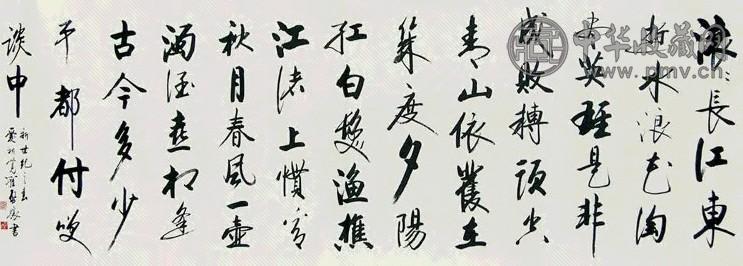 中华收藏网
www.pmv.cn
滚〻長江東
逝水浪花淘
尽英雄是非
成敗轉頭空
青山依舊在
幾度夕陽
紅白髮漁樵
江渚上慣看
秋月春風一壺
濁酒喜相逢
古今多少
事都付笑
談中
新世紀之春
愛新覺羅書